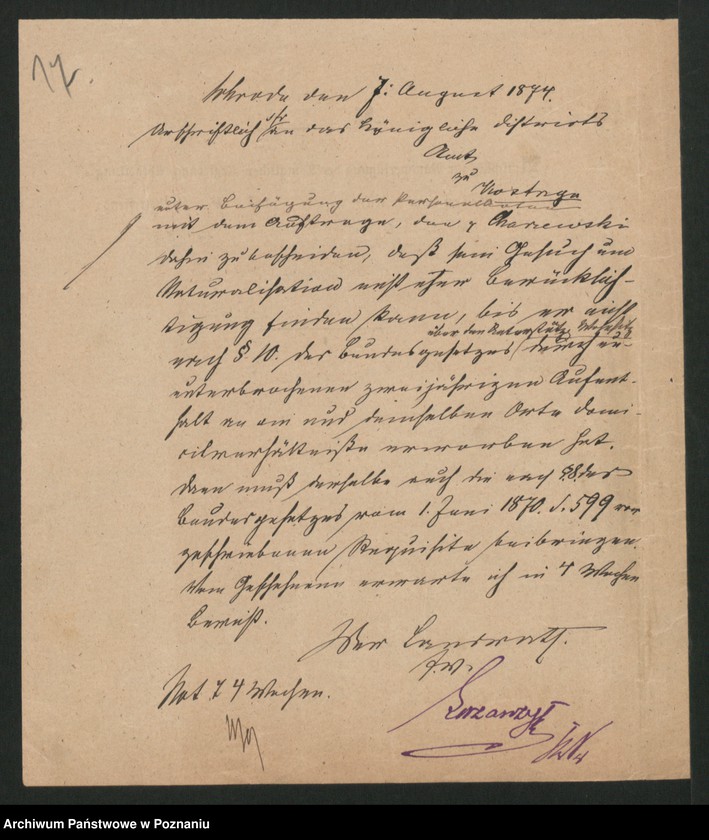 17.
Schroda den 7. August 1874.
Urschriftlich an das Königliche Distrikts
Amt
zu Kostrzyn
unter Beifügung der Personal
mit dem Auftrage, den p Charzewski
dahin zu bescheiden, daß sein Gesuch um
Naturalisation nicht eher Berücksich-
tigung finden kann, bis er nicht
über den Unterstütz. Wohnsitz
nach § 10. des Bundesgesetzes durch un-
unterbrochenen zweijährigen Aufent-
halt an ein und demselben Orte Domi-
cilverhältniße erworben hat.
Dann muß derselbe auch die nach §.8. des
Bundesgesetzes vom 1. Juni 1870. S. 599 vor
geschriebenen Requisite beibringen.
Vom Geschehenen erwarte ich in 4 Wochen
Bericht.
Der Landrath.
Not 4 Wochen.